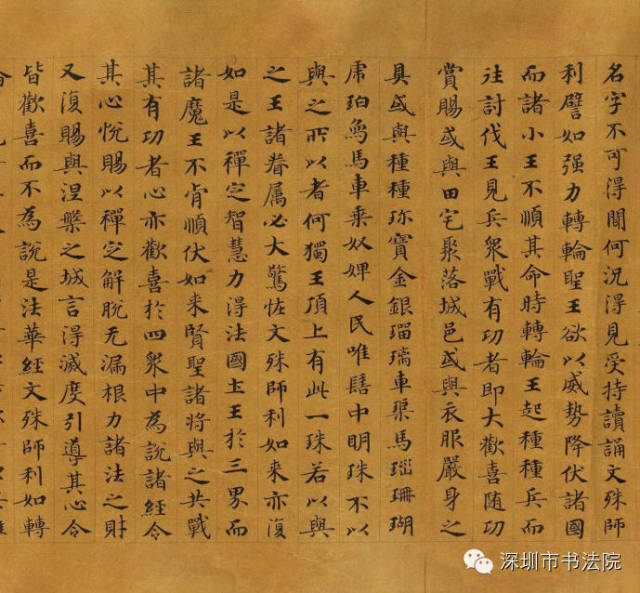 名字不可得聞何況得見受持讀誦文殊師
利譬如强力轉輪聖王欲以威勢降伏諸國
而諸小王不順其命時轉輪王起種種兵而
往討伐王見兵衆戰有功者即大歡喜随功
賞賜或與田宅聚落城邑或與衣服嚴身之
具或與種種珎寶金銀瑠璃車璖馬瑙珊瑚
虎珀象馬車乘奴婢人民唯髻中明珠不以
與之所以者何獨王頂上有此一珠若以與
之王諸眷属必大驚恠文殊師利如来亦復
如是以禪定智慧力得法國土王於三界而
諸魔王不肯順伏如来賢聖諸將與之共戰
其有功者心亦歡喜於四衆中為說諸經令
其心悅賜以禪定解脫无漏根力諸法之財
又復賜與涅槃之城言得滅度引導其心令
皆歡喜而不為說是法華經文殊師利如轉
深圳市书法院